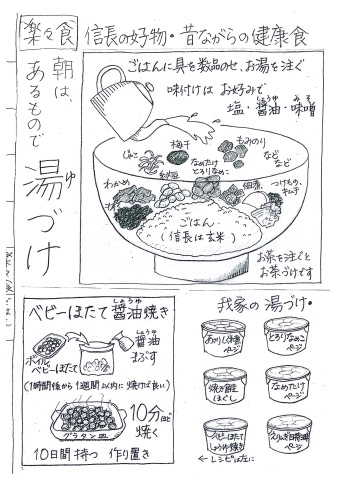 楽々食
信長の好物・昔ながらの健康食
朝は、
あるもので
湯づけ
ゆ
ごはんに具を数品のせ、お湯を注ぐ
味付けは お好みで
しょうゆ みそ
塩・醤油・味噌
じゃこ
梅干
もみのり
などなど
わかめ
納豆
なめたけ
とろりなめこ
佃煮
つけもの、
キムチ
ごはん
(信長は玄米)
お茶を注ぐと
お茶づけです
しょうゆ
ベビーほたて醤油焼き
ボイル
ベビーほたて
しょうゆ
醤油
まぶす
(1時間後から1週間以内に焼けば良い)
グラタン皿
10分ほど
焼く
10日間持つ 作り置き
我家の湯づけ・
ページ
とろりなめこ
ページ
焼き鮭
ほぐし
なめたけ
ページ
ベビーほたて
しょうゆ焼き
ページ
← レシピは左に